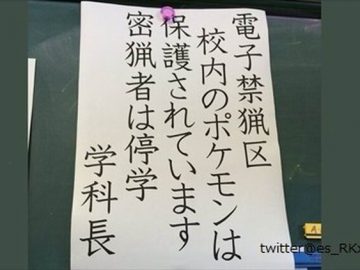 電子禁猟区
校内のポケモンは
保護されています
密猟者は停学
学科長
twitter@es_RKx